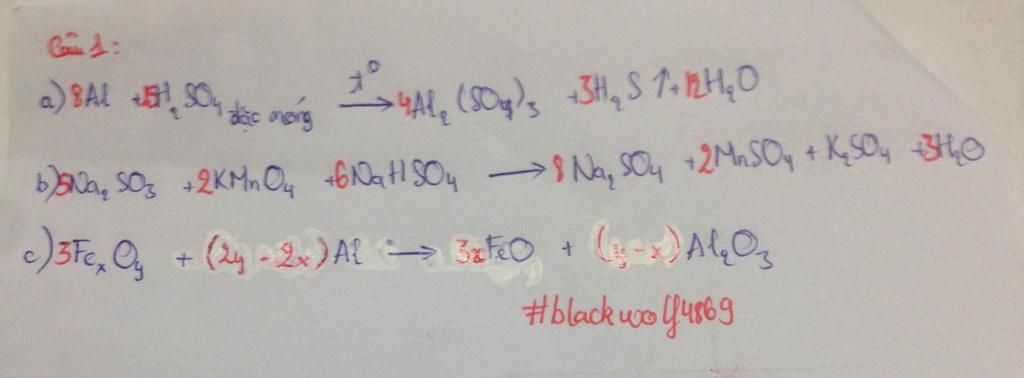 Câu 1:
a) 8Al + 15H₂SO₄ đặc nóng —t°→ 4Al₂(SO₄)₃ + 3H₂S ↑ + 12H₂O
b) 5Na₂SO₃ + 2KMnO₄ + 6NaHSO₄ → 8Na₂SO₄ + 2MnSO₄ + K₂SO₄ + 3H₂O
c) 3FeₓOᵧ + (2y - 2x)Al → 3xFeO + (y - x)Al₂O₃
#blackwolf4869